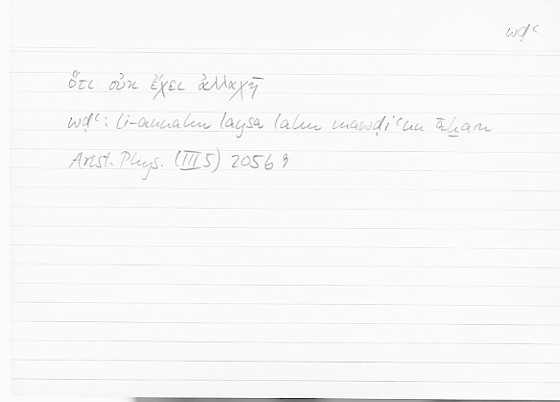 wḍʿ
ὅτι οὐκ ἔχει ἀλλαχῇ
wḍʿ: li-annahu laysa lahu mawḍiʿun āḫaru
Arist. Phys. (III 5) 205b 9